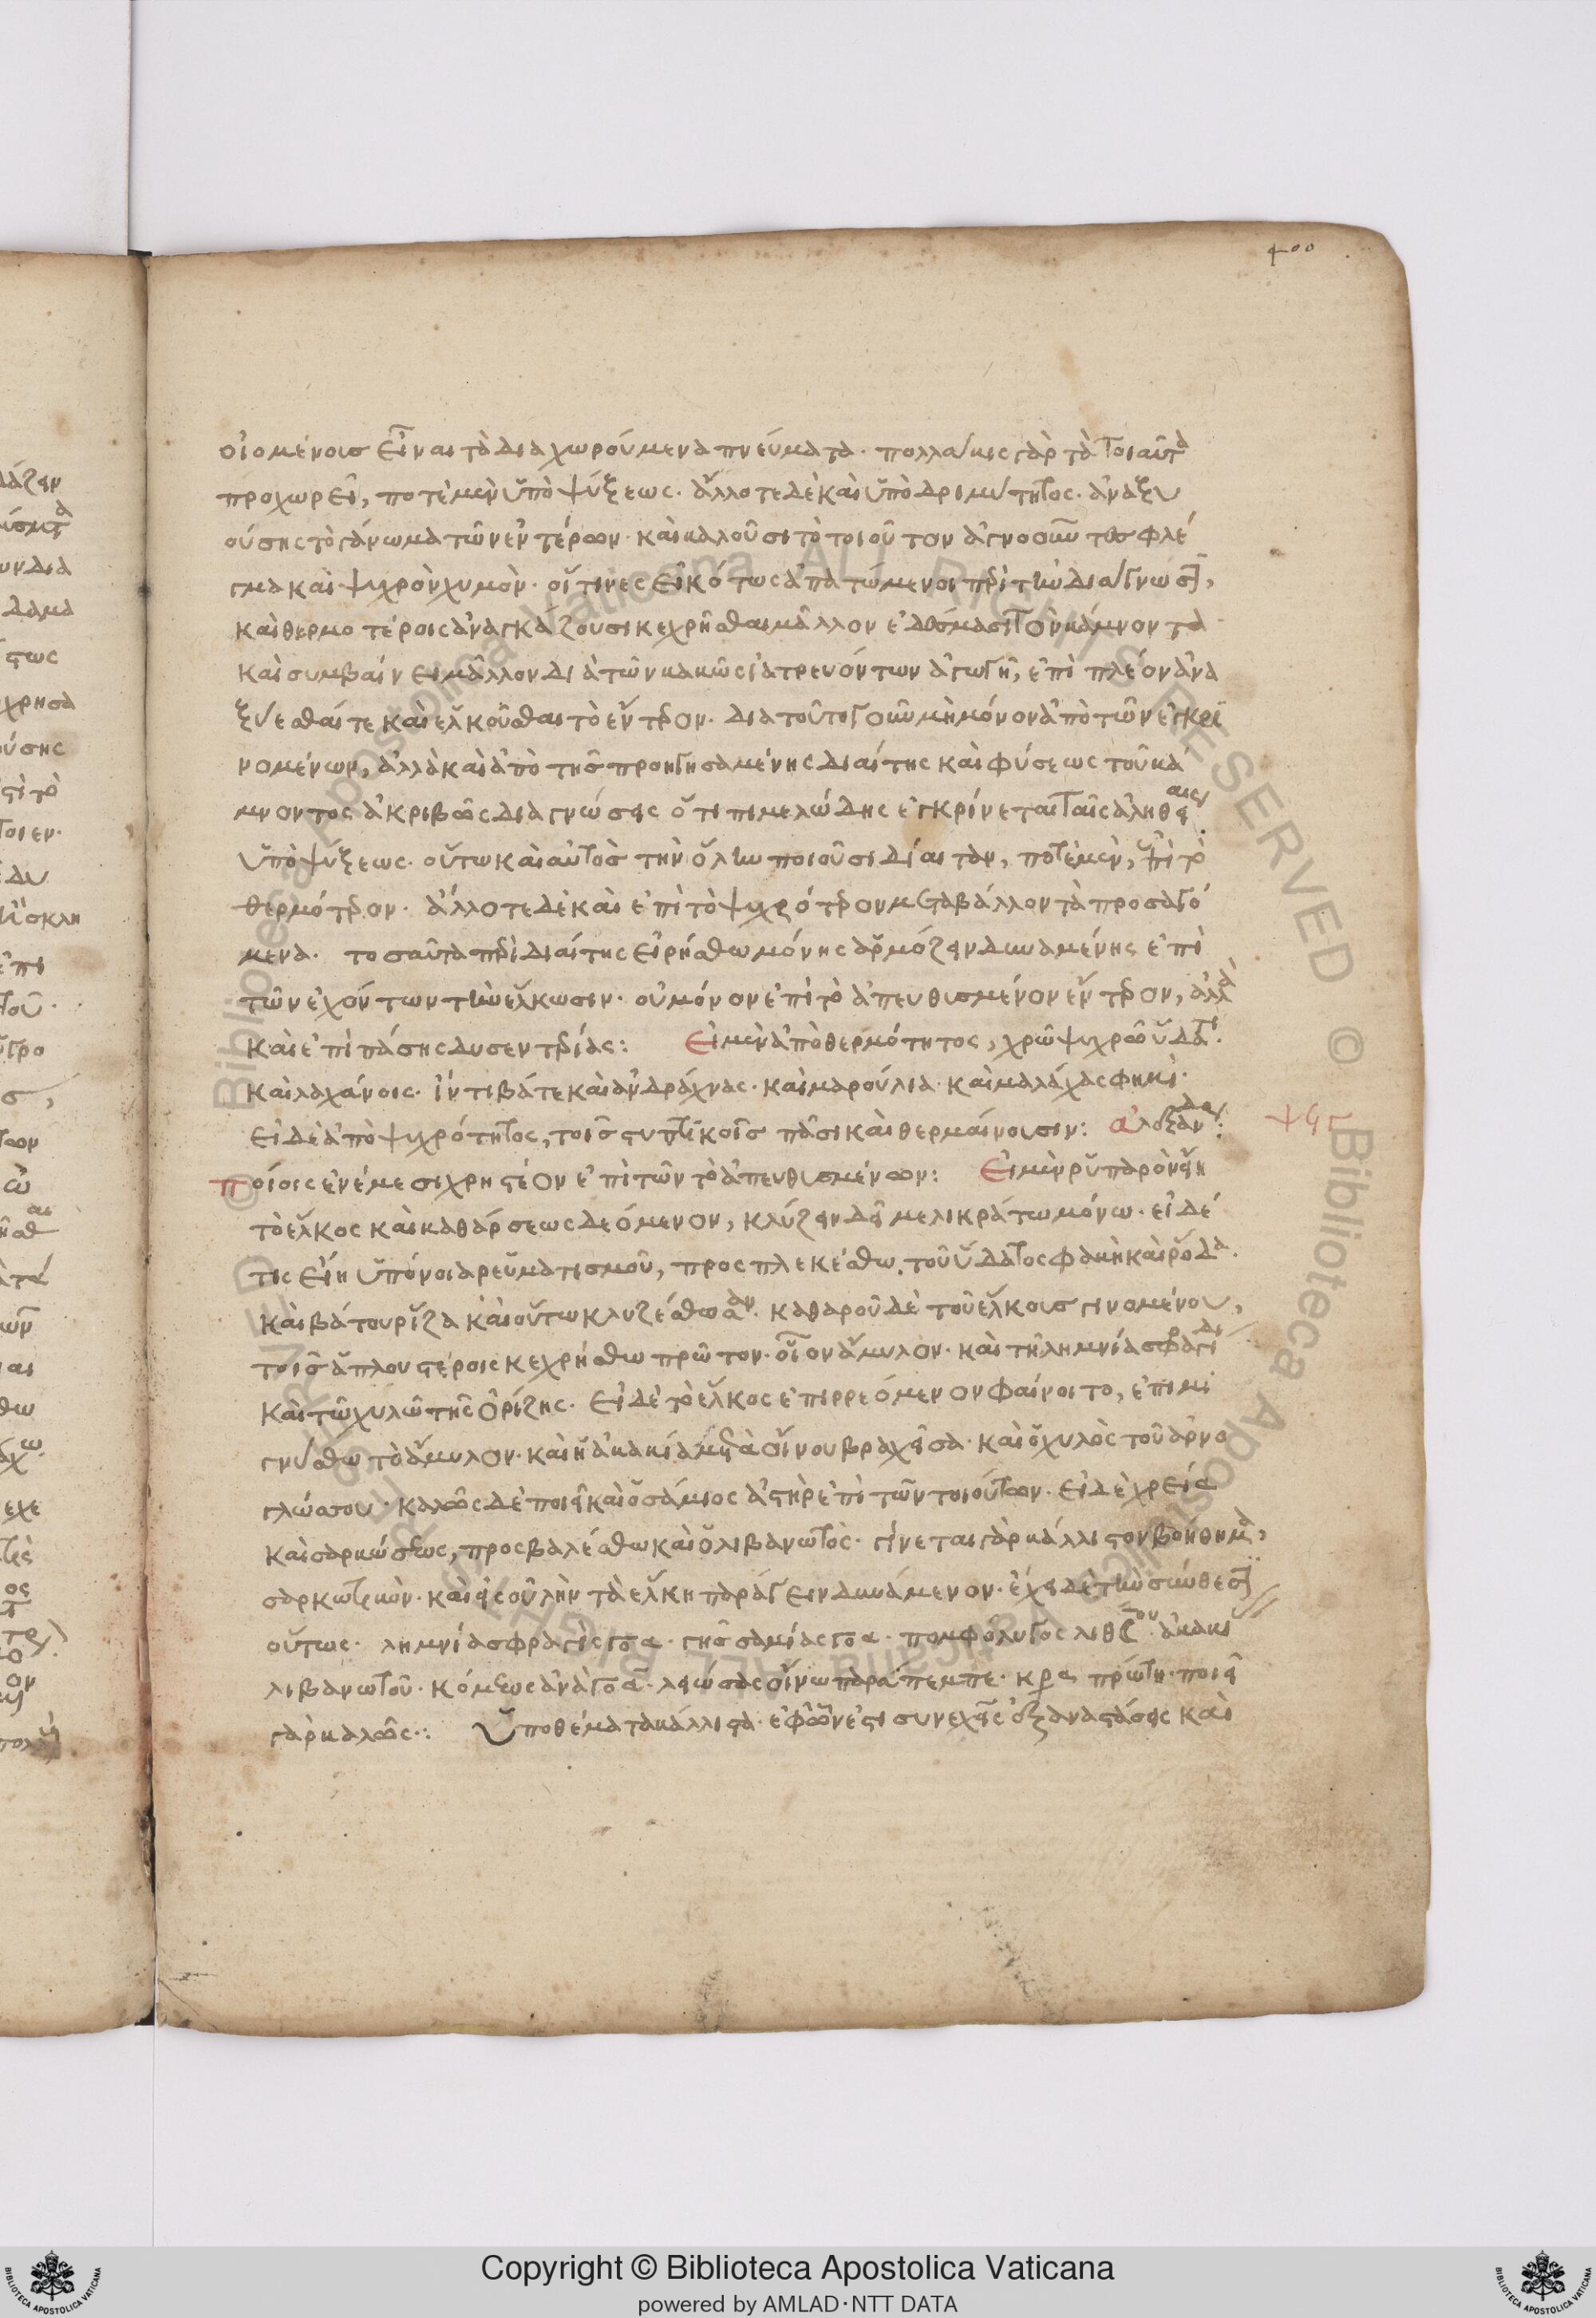 400
οἰομένοις εἶναι τὰ διαχωρούμενα πνεύματα· πολλάκις γὰρ τὰ τοιαῦτα
προχωρεῖ, ποτὲ μὲν ὑπὸ ψύξεως· ἄλλοτε δὲ καὶ ὑπὸ δριμύτητος· ἀναξυ
ούσης τὸ γάνωμα τῶν ἐντέρων· καὶ καλοῦσι τὸ τοιοῦτον ἀγνοοῦντες φλέ
γμα καὶ ψυχρὸν χυμὸν· οἵτινες εἰκότως ἀπατώμενοι περὶ τὴν διάγνωσιν,
καὶ θερμοτέροις ἀναγκάζουσι κεχρῆσθαι μᾶλλον ἐδέσμασι τὸν κάμνοντα
καὶ συμβαίνει μᾶλλον διὰ τῶν κακῶς ἰατρευόντων ἀγωγῆ, ἐπὶ πλέον ἀνα
ξύεσθαί τε καὶ ἑλκοῦσθαι τὸ ἔντερον· διὰ τοῦτο γοῦν μὴ μόνον ἀπὸ τῶν ἐκκρι
νομένων, ἀλλὰ καὶ ἀπὸ τῆς προηγησαμένης διαίτης καὶ φύσεως τοῦ κά
μνοντος ἀκριβῶς διαγνώσεις ὅτι πιμελώδης ἐκκρίνεται ταῖς ἀληθείαις
ὑπὸ ψύξεως· οὕτω καὶ αὐτὸς τὴν ὅλην ποιοῦσι δίαιταν, ποτὲ μὲν, ἐπὶ τὸ
θερμότερον· ἄλλοτε δὲ καὶ ἐπὶ τὸ ψυχρότερον μεταβάλλον τὰ προσαγό
μενα· τοσαῦτα περὶ διαίτης εἰρήσθω μόνης ἁρμόζειν δυναμένης ἐπὶ
τῶν ἐχόντων τὴν ἕλκωσιν· οὐ μόνον ἐπὶ τὸ ἀπευθυσμένον ἔντερον, ἀλλὰ
καὶ ἐπὶ πάσης δυσεντερίας: Εἰ μὲν ἀπὸ θερμότητος, χρῶ ψυχρῶ ὕδατι·
καὶ λαχάνοις· ἰντιβά τε καὶ ἀνδράχνας· καὶ μαρούλια· καὶ μαλάχας φημί·
εἰ δὲ ἀπὸ ψυχρότητος, τοῖς στυπτικοῖς πᾶσι καὶ θερμαίνουσιν: αλεξανδρου: ψϟγ
ποίοις ἐνέμεσι χρηστέον ἐπὶ τῶν τὸ ἀπευθυσμένων: Εἰ μὲν ῥυπαρὸν εἴη
τὸ ἕλκος καὶ καθάρσεως δεόμενον, κλύζειν δεῖ μελικράτω μόνω· εἰ δέ
τις εἴη ὑπόνοια ρευματισμοῦ, προσπλεκέσθω τοῦ ὕδατος φακῆ καὶ ῥόδα·
καὶ βάτου ρίζα καὶ οὕτω κλυζέσθωσαν· καθαροῦ δὲ τοῦ ἕλκους γινομένου,
τοῖς ἁπλουστέροις κεχρήσθω πρῶτον· οἷον ἄμυλον· καὶ τῆ λημνία σφραγίδι
καὶ τῶ χυλῶ τῆς ὀρίζης· Εἰ δὲ τὸ ἕλκος ἐπιρρεόμενον φαίνοιτο, ἐπιμι
γνύσθω τὸ ἄμυλον· καὶ ἡ ἀκακία μετὰ οἴνου βραχεῖσα· καὶ ὁ χυλὸς τοῦ ἀρνο
γλώσσου· καλῶς δὲ ποιεῖ καὶ ὁ σάμιος ἀστὴρ ἐπὶ τῶν τοιούτων· εἰ δὲ χρεία
καὶ σαρκώσεως, προσβαλέσθω καὶ ὁ λιβανωτὸς· γίνεται γὰρ κάλλιστον βοήθημα,
σαρκωτικὸν· καὶ εἰς οὐλὴν τὰ ἕλκη παράγειν δυνάμενον· ἔχει δὲ τὴν σύνθεσιν
οὕτως· λημνίας φραγὶς γο α· γῆς σαμίας γο α· πομφόλυγος ἀκακί
λιβανωτοῦ· κόμεως ἀνὰ γο α· λειώσας οἴνω παράπεμπε· πρώτη· ποιεῖ
γὰρ καλῶς: Ὑποθέματα κάλλιστα· ἐφ' ὧν ἐστι συνεχεῖς ἐξαναστάσεις καὶ